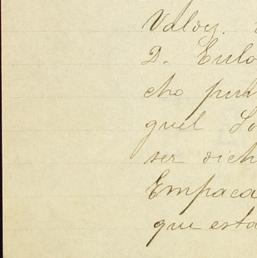 Valoy.
D. Eulo
cho pun
guel Lo
ser dich
Empaca
que esta